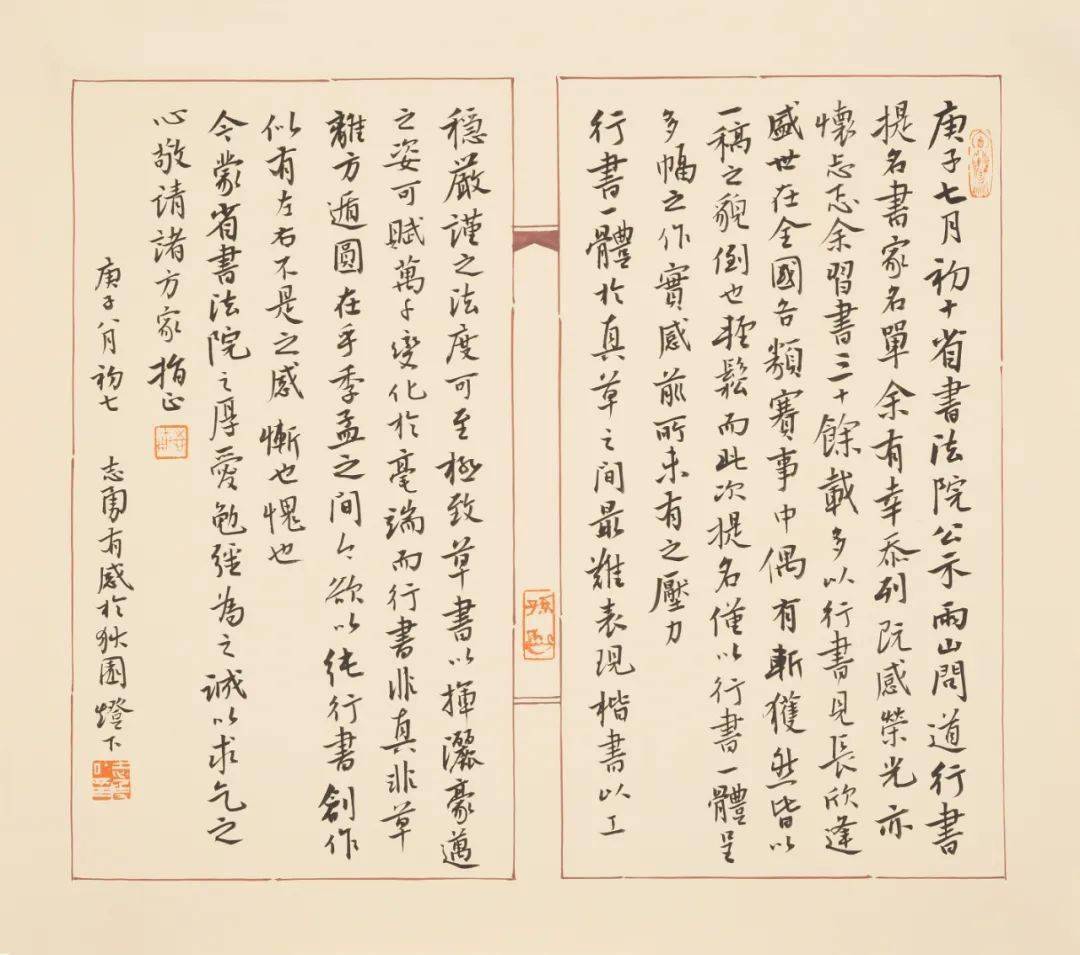 庚子七月初十省書法院公示雨山問道行書
提名書家名單余有幸忝列既感榮光亦
懷忐忑余習書三十餘載多以行書見長欣逢
盛世在全國各類賽事中偶有斬獲然皆以
一稿之貌倒也輕鬆而此次提名僅以行書一體呈
多幅之作實感前所未有之壓力
行書一體於真草之間最難表現楷書以工
穩嚴謹之法度可至極致草書以揮灑豪邁
之姿可賦萬千變化於毫端而行書非真非草
離方遁圓在乎季孟之間今欲以純行書創作
似有左右不是之感慚也愧也
今蒙省書法院之厚愛勉強為之誠以求乞之
心敬請諸方家指正
庚子八月初七 志勇有感於狄園燈下